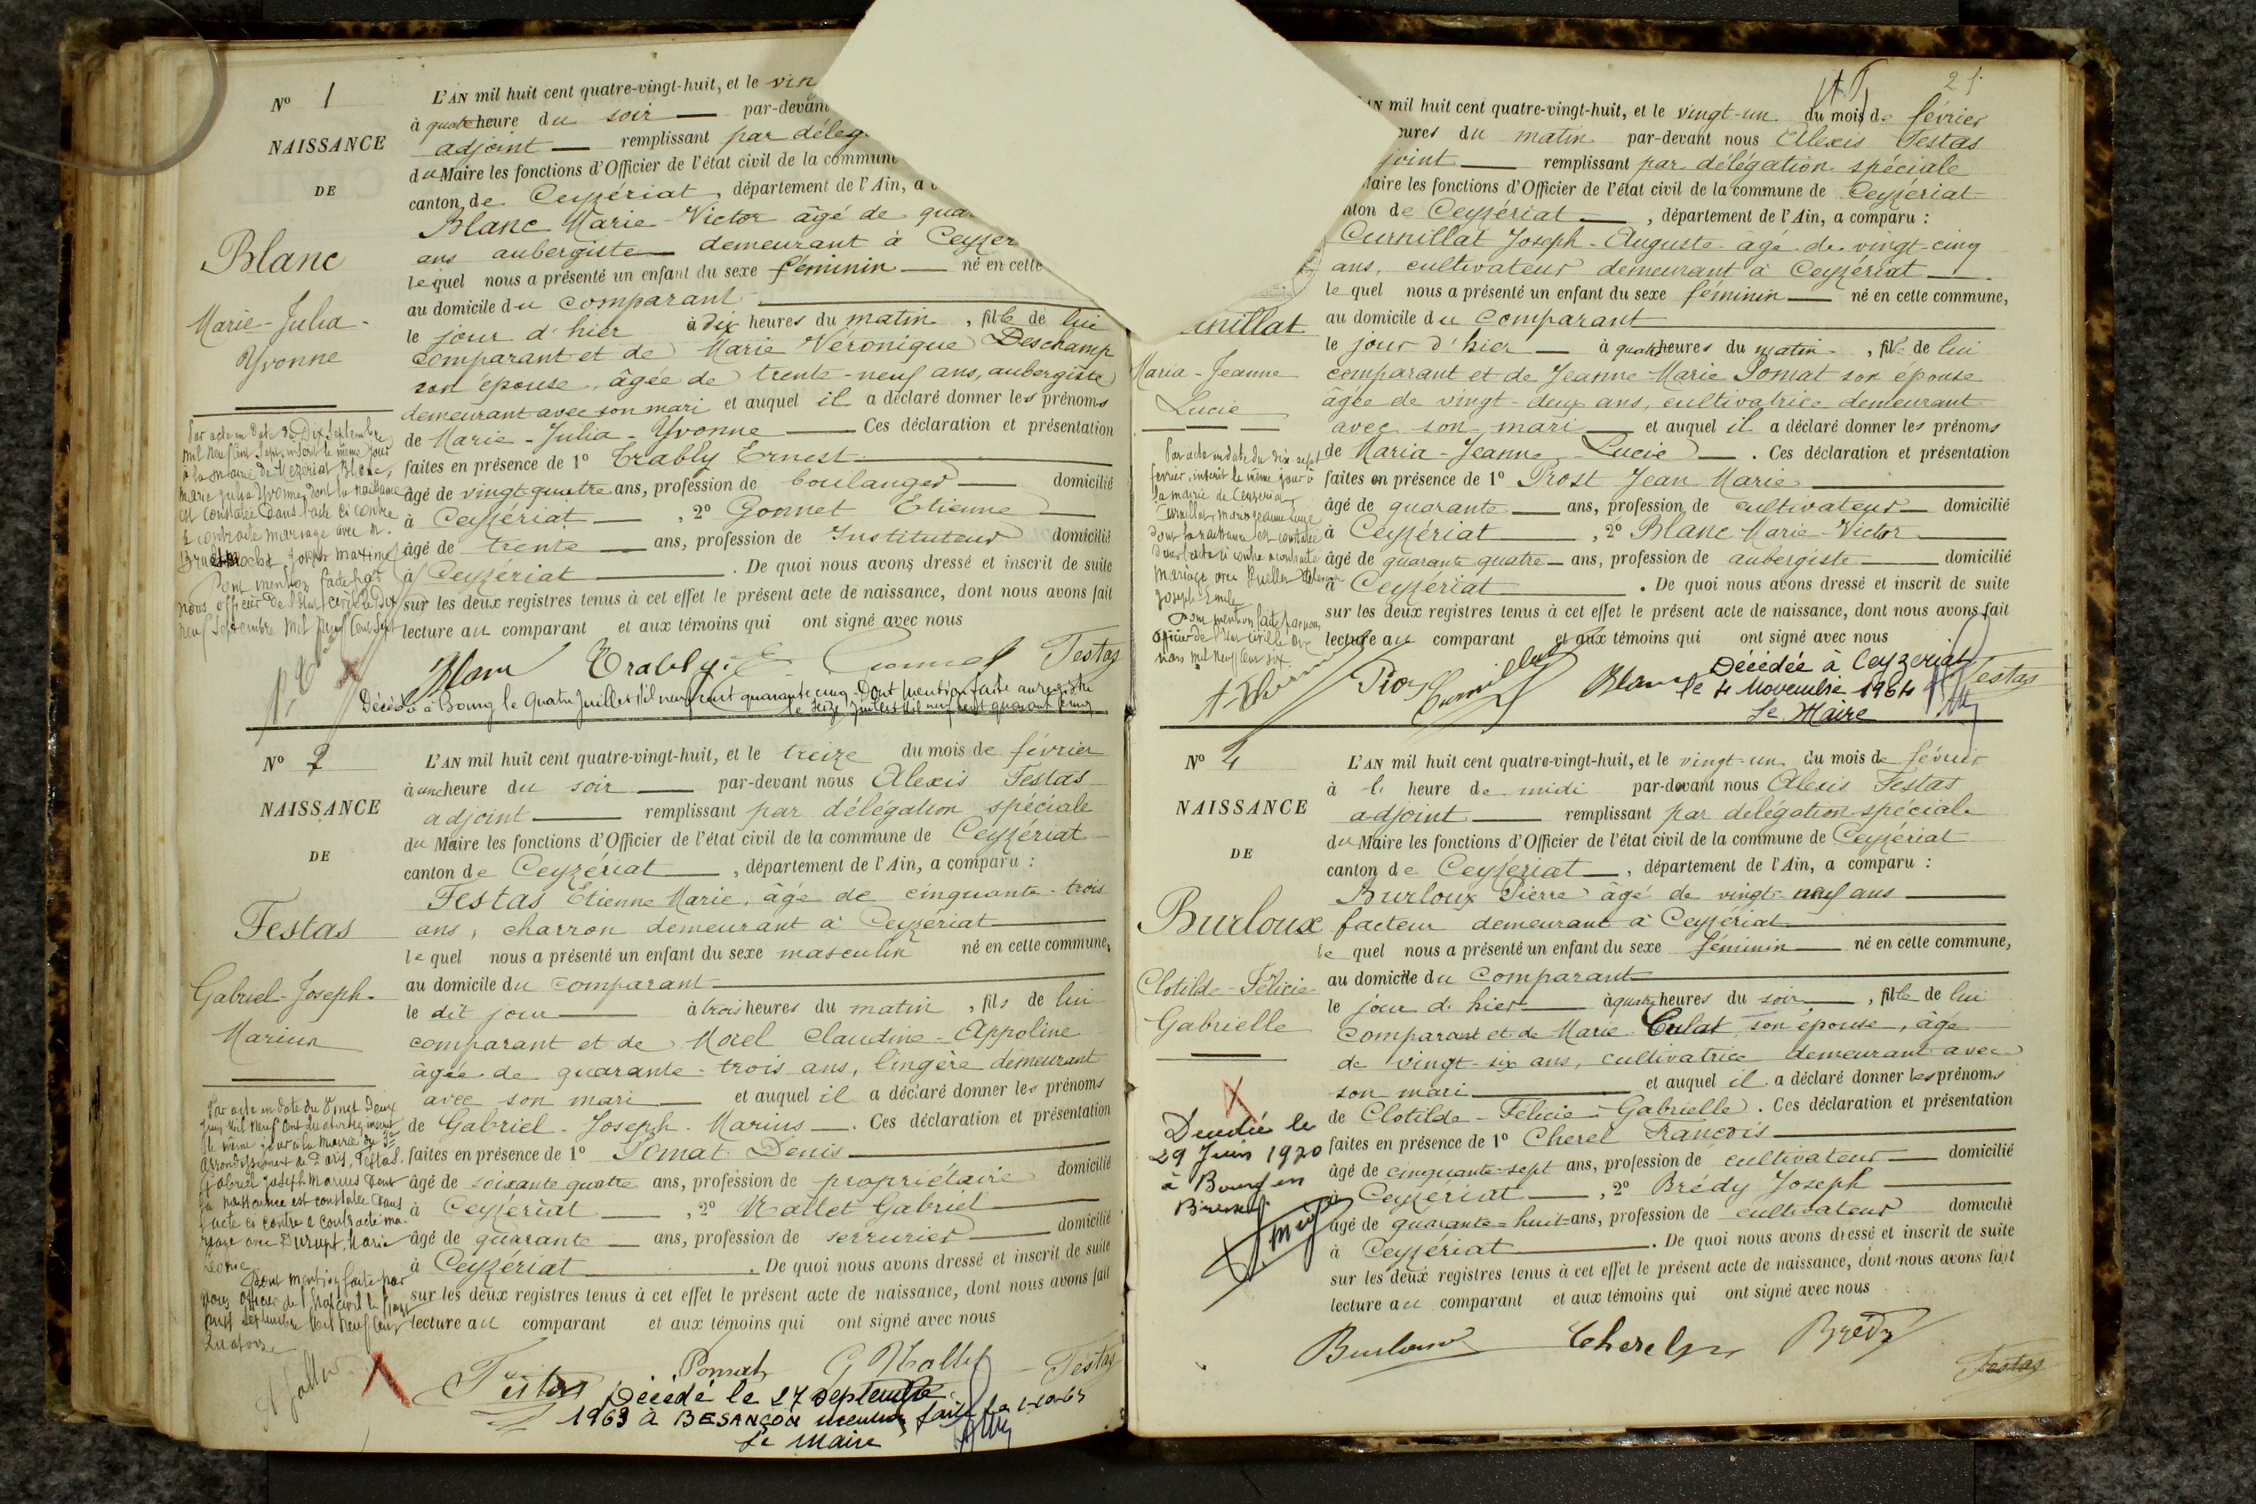 Nº 1
NAISSANCE
DE
Blanc
Marie-Julia-
Yvonne
L'AN mil huit cent quatre-vingt-huit, et le
à quatre heure du soir par-devant
adjoint remplissant par
du Maire les fonctions d'Officier de l'état civil de la commune
canton de Ceyzériat, département de l'Ain, a
Blanc Marie-Victor âgé de
ans aubergiste demeurant à
lequel nous a présenté un enfant du sexe féminin né en cette
au domicile du comparant
le jour d'hier à dix heures du matin, fille de lui
comparant et de Marie Véronique Deschamp
son épouse, âgée de trente-neuf ans, aubergiste
demeurant avec son mari et auquel il a déclaré donner les prénoms
de Marie-Julia-Yvonne Ces déclaration et présentation
faites en présence de 1º Trably Ernest
âgé de vingt-quatre ans, profession de boulanger domicilié
à Ceyzériat, 2º Gonnet Etienne
âgé de trente ans, profession de Instituteur domicilié
à Ceyzériat. De quoi nous avons dressé et inscrit de suite
sur les deux registres tenus à cet effet le présent acte de naissance, dont nous avons fait
lecture au comparant et aux témoins qui ont signé avec nous
Par acte en date du Dix Septembre
mil neuf cent Sept, inscrit le même jour
à la mairie de Blanc,
Marie Julia Yvonne, dont la naissance
est constatée dans l'acte ci contre
a contracté mariage avec M.
Joseph Maxime
Dont mention faite par
nous officier de l'Etat civil le Dix
neuf Septembre mil neuf cent sept
Blanc Trably E Gonnet Testas
Décédée à Bourg le quatre juillet mil neuf cent quarante cinq. Dont mention faite au registre
le seize juillet mil neuf cent quarante cinq
Nº 2
NAISSANCE
DE
Festas
Gabriel-Joseph-
Marius
L'AN mil huit cent quatre-vingt-huit, et le treize du mois de février
à une heure du soir par-devant nous Alexis Festas
adjoint remplissant par délégation spéciale
du Maire les fonctions d'Officier de l'état civil de la commune de Ceyzériat
canton de Ceyzériat, département de l'Ain, a comparu :
Festas Etienne Marie, âgé de cinquante-trois
ans, charron demeurant à Ceyzériat
lequel nous a présenté un enfant du sexe masculin né en cette commune,
au domicile du comparant
le dit jour à trois heures du matin, fils de lui
comparant et de Morel Claudine-Appoline
âgée de quarante-trois ans, lingère demeurant
avec son mari et auquel il a déclaré donner les prénoms
de Gabriel-Joseph-Marius. Ces déclaration et présentation
faites en présence de 1º Pomat Denis
âgé de soixante quatre ans, profession de propriétaire domicilié
à Ceyzériat, 2º Mallet Gabriel
âgé de quarante ans, profession de serrurier domicilié
à Ceyzériat. De quoi nous avons dressé et inscrit de suite
sur les deux registres tenus à cet effet le présent acte de naissance, dont nous avons fait
lecture au comparant et aux témoins qui ont signé avec nous
Par acte en date du Vingt Deux
Juin Mil neuf cent
le même jour à la mairie du
arrondissement de Paris, Festas
Gabriel Joseph Marius dont
la naissance est constatée dans
l'acte ci contre a contracté ma-
riage avec Durupt, Marie
Léonie
Dont mention faite par
nous officier de l'Etat civil le
Septembre Mil neuf cent
Quatorze
Festas Pomat G Mallet Testas
Décédé le 27 septembre
1963 à BESANÇON mention faite le 1-10-63
Le Maire
21
L'AN mil huit cent quatre-vingt-huit, et le vingt-un du mois de février
heures du matin par-devant nous Alexis Festas
adjoint remplissant par délégation spéciale
Maire les fonctions d'Officier de l'état civil de la commune de Ceyzériat
canton de Ceyzériat, département de l'Ain, a comparu :
Curnillat Joseph-Auguste âgé de vingt-cinq
ans, cultivateur demeurant à Ceyzériat
lequel nous a présenté un enfant du sexe féminin né en cette commune,
au domicile du comparant
le jour d'hier à quatre heures du matin, fille de lui
comparant et de Jeanne-Marie Pomat son épouse
âgée de vingt-deux ans, cultivatrice demeurant
avec son mari et auquel il a déclaré donner les prénoms
de Maria-Jeanne-Lucie. Ces déclaration et présentation
faites en présence de 1º Prost Jean Marie
âgé de quarante ans, profession de cultivateur domicilié
à Ceyzériat, 2º Blanc Marie-Victor
âgé de quarante quatre ans, profession de aubergiste domicilié
à Ceyzériat. De quoi nous avons dressé et inscrit de suite
sur les deux registres tenus à cet effet le présent acte de naissance, dont nous avons fait
lecture au comparant et aux témoins qui ont signé avec nous
nillat
Maria-Jeanne
Lucie
Par acte en date du dix sept
février, inscrit le même jour à
la mairie de Ceyzériat
Curnillat, Maria Jeanne Lucie
dont la naissance est constatée
dans l'acte ci contre a contracté
mariage avec
Joseph Emile
Dont mention faite par nous
officier de l'Etat civil le
mars mil neuf cent six.
Curnillat Blanc Testas
Décédée à Ceyzériat
le 4 Novembre 1964
Le Maire
Nº 4
NAISSANCE
DE
Burloux
Clotilde-Félicie-
Gabrielle
L'AN mil huit cent quatre-vingt-huit, et le vingt-un du mois de février
à heure de midi par-devant nous Alexis Festas
adjoint remplissant par délégation spéciale
du Maire les fonctions d'Officier de l'état civil de la commune de Ceyzériat
canton de Ceyzériat, département de l'Ain, a comparu :
Burloux Pierre âgé de vingt-neuf ans
facteur demeurant à Ceyzériat
le quel nous a présenté un enfant du sexe féminin né en cette commune,
au domicile du comparant
le jour d'hier à quatre heures du soir, fille de lui
comparant et de Marie Culat son épouse, âgé
de vingt-six ans, cultivatrice demeurant avec
son mari et auquel il a déclaré donner les prénoms
de Clotilde-Félicie-Gabrielle. Ces déclaration et présentation
faites en présence de 1º Cherel François
âgé de cinquante-sept ans, profession de cultivateur domicilié
à Ceyzériat, 2º Brédy Joseph
âgé de quarante-huit ans, profession de cultivateur domicilié
à Ceyzériat. De quoi nous avons dressé et inscrit de suite
sur les deux registres tenus à cet effet le présent acte de naissance, dont nous avons fait
lecture au comparant et aux témoins qui ont signé avec nous
Décédée le
29 Juin 1970
à Bourg en
Bresse
Burloux Cherel Brédy Testas